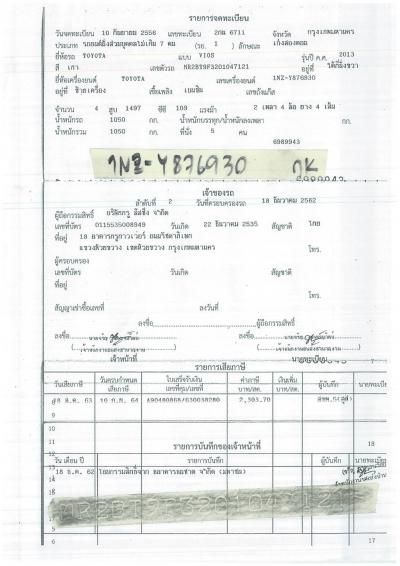 รายการจดทะเบียน
วันจดทะเบียน 10 กันยายน 2556 เลขทะเบียน 2กท 6711 จังหวัด กรุงเทพมหานคร
ประเภท รถยนต์นั่งส่วนบุคคลไม่เกิน 7 คน (รย. 1 ) ลักษณะ เก๋งสองตอน
ยี่ห้อรถ TOYOTA แบบ VIOS รุ่นปี ค.ศ. 2013
สี เทา เลขตัวรถ MR2BT9F3201047121 อยู่ที่ ใต้ที่นั่งขวา
ยี่ห้อเครื่องยนต์ TOYOTA เลขเครื่องยนต์ 1NZ-Y876930
อยู่ที่ ข้างเครื่อง เชื้อเพลิง เบนซิน เลขถังแก๊ส
จำนวน 4 สูบ 1497 ซีซี 109 แรงม้า 2 เพลา 4 ล้อ ยาง 4 เส้น
น้ำหนักรถ 1050 กก. น้ำหนักบรรทุก/น้ำหนักลงเพลา กก.
น้ำหนักรวม 1050 กก. ที่นั่ง 5 คน
6989943
1NZ-Y876930
6989943
เจ้าของรถ
ลำดับที่ 2 วันที่ครอบครองรถ 18 ธันวาคม 2562
ผู้ถือกรรมสิทธิ์ บริษัทกรู ลีสซิ่ง จำกัด
เลขที่บัตร 0115535008949 วันเกิด 22 ธันวาคม 2535 สัญชาติ ไทย
ที่อยู่ 18 อาคารกรูทาวเวอร์ ถนนรัชดาภิเษก
แขวงห้วยขวาง เขตห้วยขวาง กรุงเทพมหานคร โทร.
ผู้ครอบครอง
เลขที่บัตร วันเกิด สัญชาติ
ที่อยู่
โทร.
สัญญาเช่าซื้อเลขที่ ลงวันที่
ลงชื่อ ผู้ถือกรรมสิทธิ์
ลงชื่อ ลงชื่อ
เจ้าหน้าที่ นายทะเบียน
7
รายการเสียภาษี
วันเสียภาษี วันครบกำหนดเสียภาษี ใบเสร็จรับเงิน เลขที่คุม/เลขที่ ค่าภาษี บาท/สต. เงินเพิ่ม บาท/สต. ผู้บันทึก นายทะเบียน
8 ส.ค. 63 10 ก.ย. 64 A90480868/630038280 2,303.70
9
10
11 18
รายการบันทึกของเจ้าหน้าที่
วัน เดือน ปี รายการบันทึก ผู้บันทึก นายทะเบียน
18 ธ.ค. 62 โอนกรรมสิทธิ์จาก ธนาคารธนชาต จำกัด (มหาชน)
5
6 17